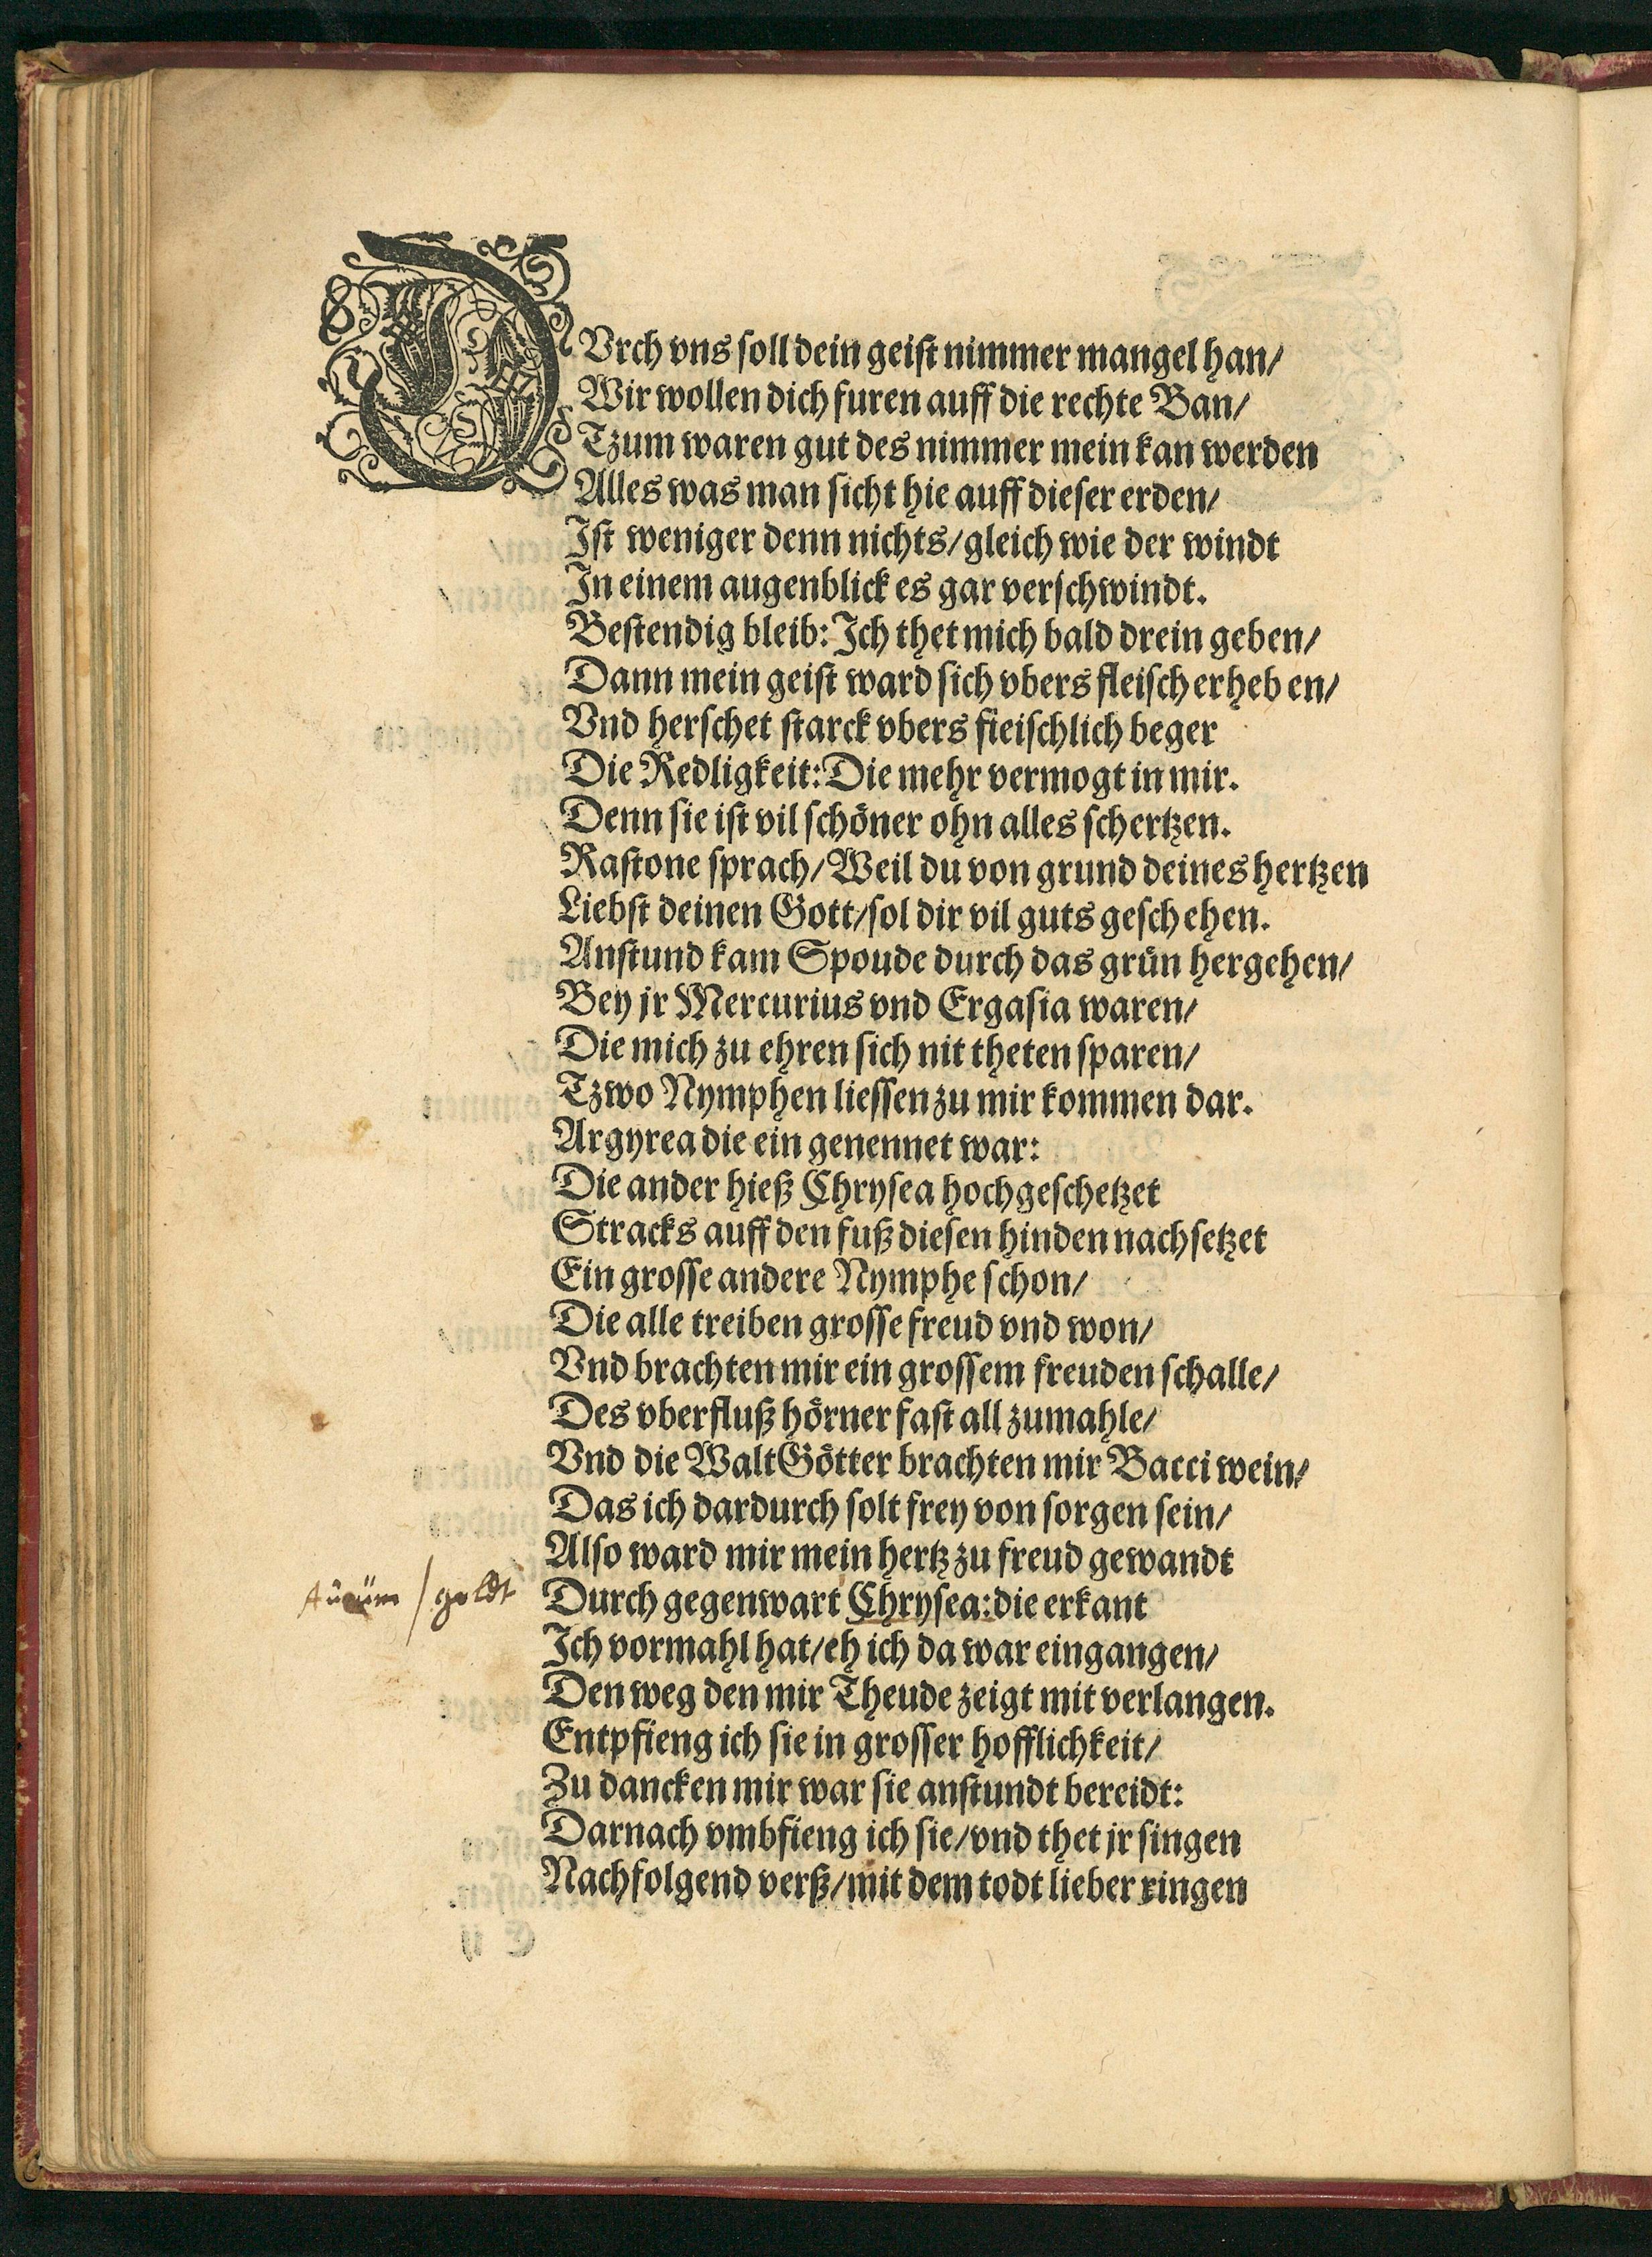 DVrch vns soll dein geist nimmer mangel han/
Wir wollen dich furen auff die rechte Ban/
Tzum waren gut des nimmer mein kan werden
Alles was man sicht hie auff dieser erden/
Ist weniger denn nichts/gleich wie der windt
In einem augenblick es gar verschwindt.
Bestendig bleib: Ich thet mich bald drein geben/
Dann mein geist ward sich vbers fleisch erheb en/
Vnd herschet starck vbers fieischlich beger
Die Redligkeit: Die mehr vermogt in mir.
Denn sie ist vil schöner ohn alles schertzen.
Rastone sprach/Weil du von grund deines hertzen
Liebst deinen Gott/sol dir vil guts geschehen.
Anstund kam Spoude durch das grün hergehen/
Bey jr Mercurius vnd Ergasia waren/
Die mich zu ehren sich nit theten sparen/
Tzwo Nymphen liessen zu mir kommen dar.
Argyrea die ein genennet war:
Die ander hieß Chrysea hochgeschetzet
Stracks auff den fuß diesen hinden nachsetzet
Ein grosse andere Nymphe schon/
Die alle treiben grosse freud vnd won/
Vnd brachten mir ein grossem freuden schalle/
Des vberfluß hörner fast all zumahle/
Vnd die WaltGötter brachten mir Bacci wein/
Das ich dardurch solt frey von sorgen sein/
Also ward mir mein hertz zu freud gewandt
Aurum / goldt
Durch gegenwart Chrysea: die erkant
Ich vormahl hat/eh ich da war eingangen/
Den weg den mir Theude zeigt mit verlangen.
Entpfieng ich sie in grosser hofflichkeit/
Zu dancken mir war sie anstundt bereidt:
Darnach vmbfieng ich sie/vnd thet jr singen
Nachfolgend verß/mit dem todt lieber ringen